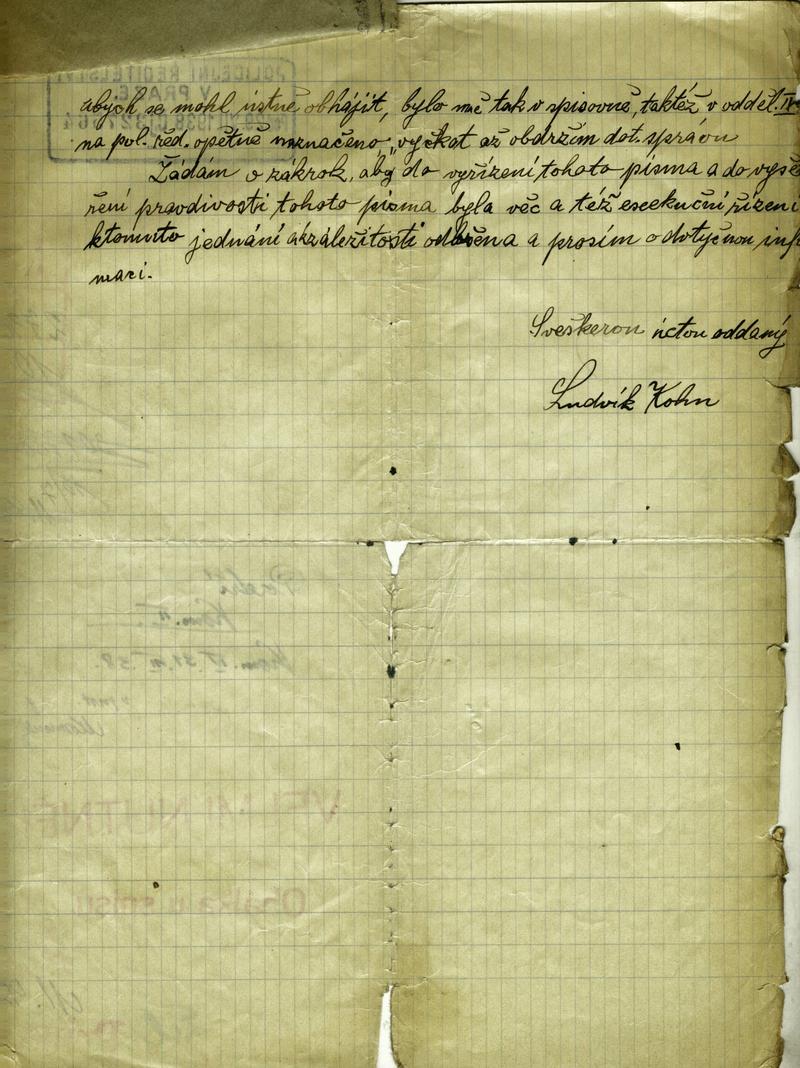 abych se mohl ústně obhájit, bylo mě tak v spisovně, taktéž v odděl. IV
na pol. řed. opětně naznačeno „vyčkat až obdržím dot. zprávu
Žádám o zákrok, aby do vyřízení tohoto písma a do vyše
ření pravdivosti tohoto písma byla věc a též exekuční řízení
ktomuto jednání a k záležitosti odložena a prosím o dotyčnou inf
maci.
S veškerou úctou oddaný
Ludvík Kohn
POLICEJNÍ ŘEDITELSTVÍ
V PRAZE
VELMI NUTNÉ
Obálka u spisu